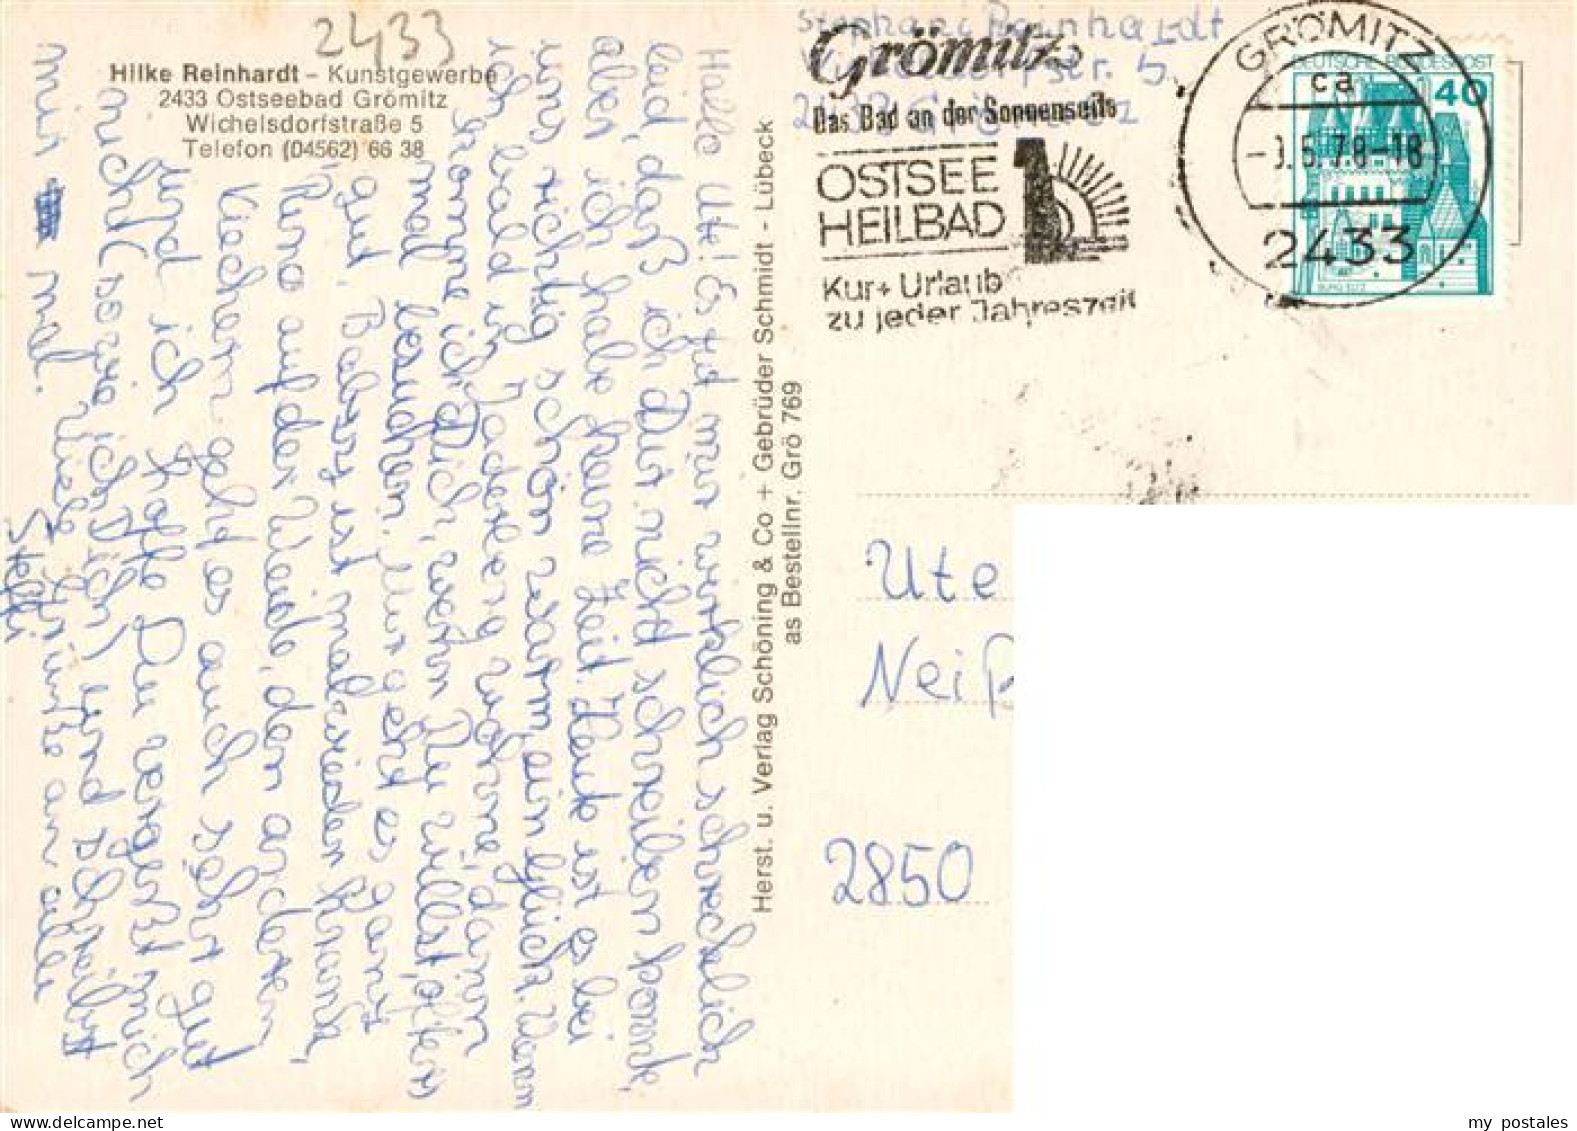 2433
Hilke Reinhardt – Kunstgewerbe
2433 Ostseebad Grömitz
Wichelsdorfstraße 5
Telefon (04562) 66 38
Hallo Ute! Es tut mir wirklich schrecklich
leid, daß ich Dir nicht schreiben konnte,
aber ich habe keine Zeit. Heute ist es bei
uns richtig schön warm, ein Glück. Wenn
ich bald in wohne, dann
komme ich Dich, wenn Du willst, öfters
mal besuchen. Mir geht es ganz
gut. Babsy ist mal wieder krank,
auf der Weide, den anderen
geht es auch sehr gut
und ich hoffe Du vergißt mich
auch (sowie ich Dich) und schreibst
mir mal. Viele Grüße an alle
Steffi
Herst. u. Verlag Schöning & Co + Gebrüder Schmidt - Lübeck
as Bestellnr. Grö 769
Stephani Reinhardt
5
Grömitz
Das Bad an der Sonnenseite
OSTSEE
HEILBAD
Kur + Urlaub
zu jeder Jahreszeit
GRÖMITZ
ca
2433
DEUTSCHE BUNDESPOST
40
BURG ELTZ
Ute
2850
my postales